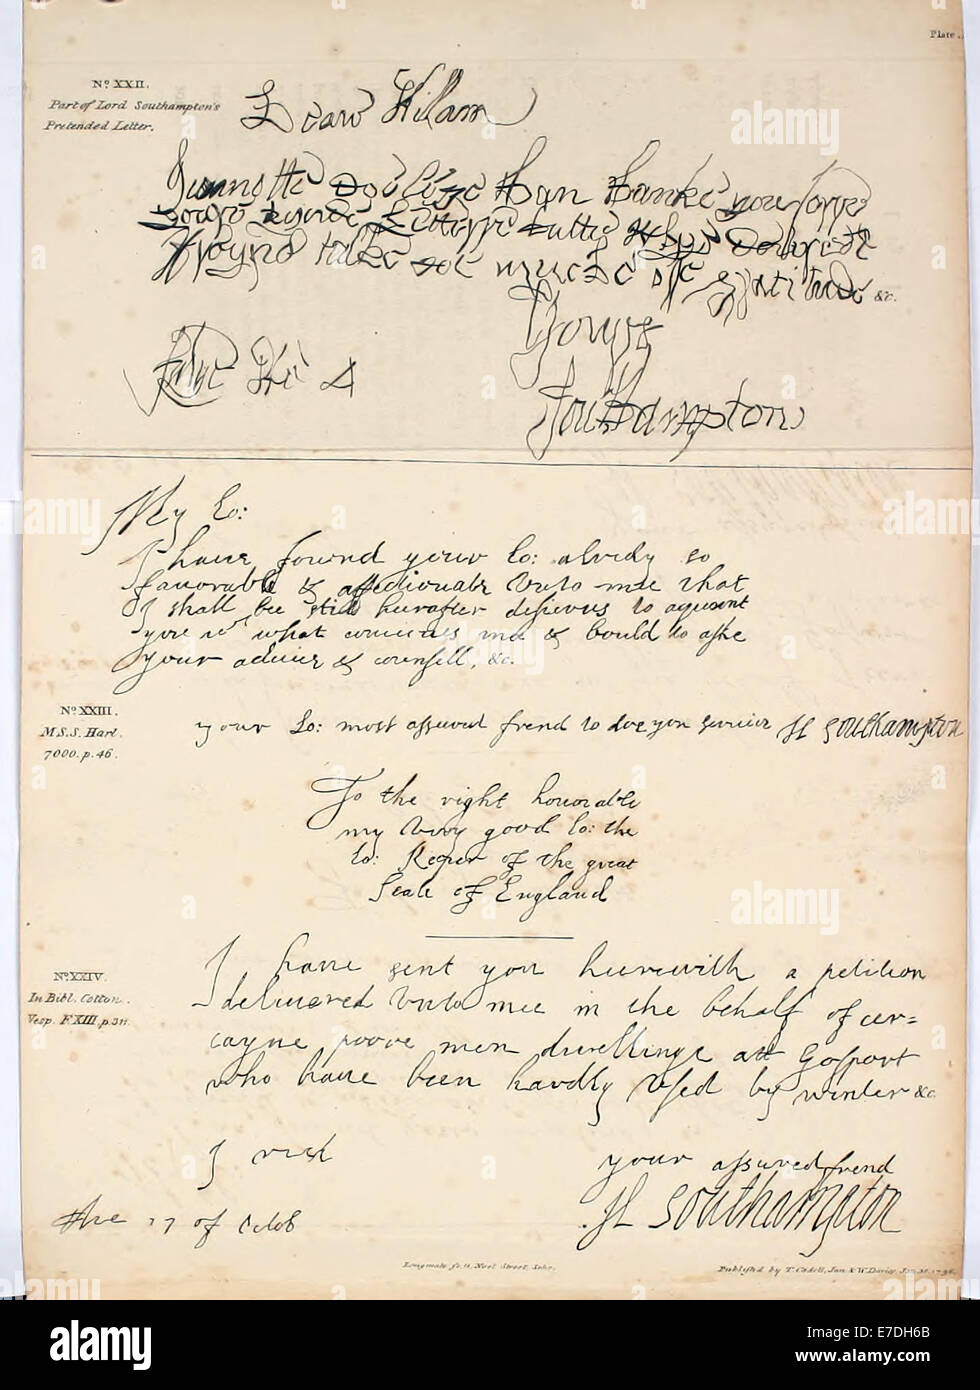 Plate
No. XXII.
Part of Lord Southampton's
Pretended Letter.
Deare Willam
Doe Notte esteeme
Butte
talke not much offe Gratitude &c.
Yours
Southampton
July the 4
My Lo:
I haue found your Lo: alredy so
fauorable & affectionate vnto mee that
I shall bee still heerafter desierous to aquaint
you wth what concernes mee & bould to aske
your aduice & counsell, &c.
No. XXIII.
M.S.S. Harl.
7000. p. 46.
your Lo: most assured frend to doe you seruice H Southampton
To the right honorable
my very good Lo: the
Lo: Keper of the great
Seale of England
No. XXIV.
In Bibl. Cotton.
Vesp. F XIII, p. 311.
I haue sent you heerewith a petition
deliuered vnto mee in the behalf of cer=
tayne poore men dwellinge att Gosport
who haue been hardly vsed by winter &c.
I rest
your assured frend
H Southampton
the 17 of Octob
Longmate sc. 11, Noel Street, Soho.
Published by T. Cadell, Jun. & W. Davies, Jan. 1796.
alamy
alamy
alamy
Image ID: E7DH6B
www.alamy.com